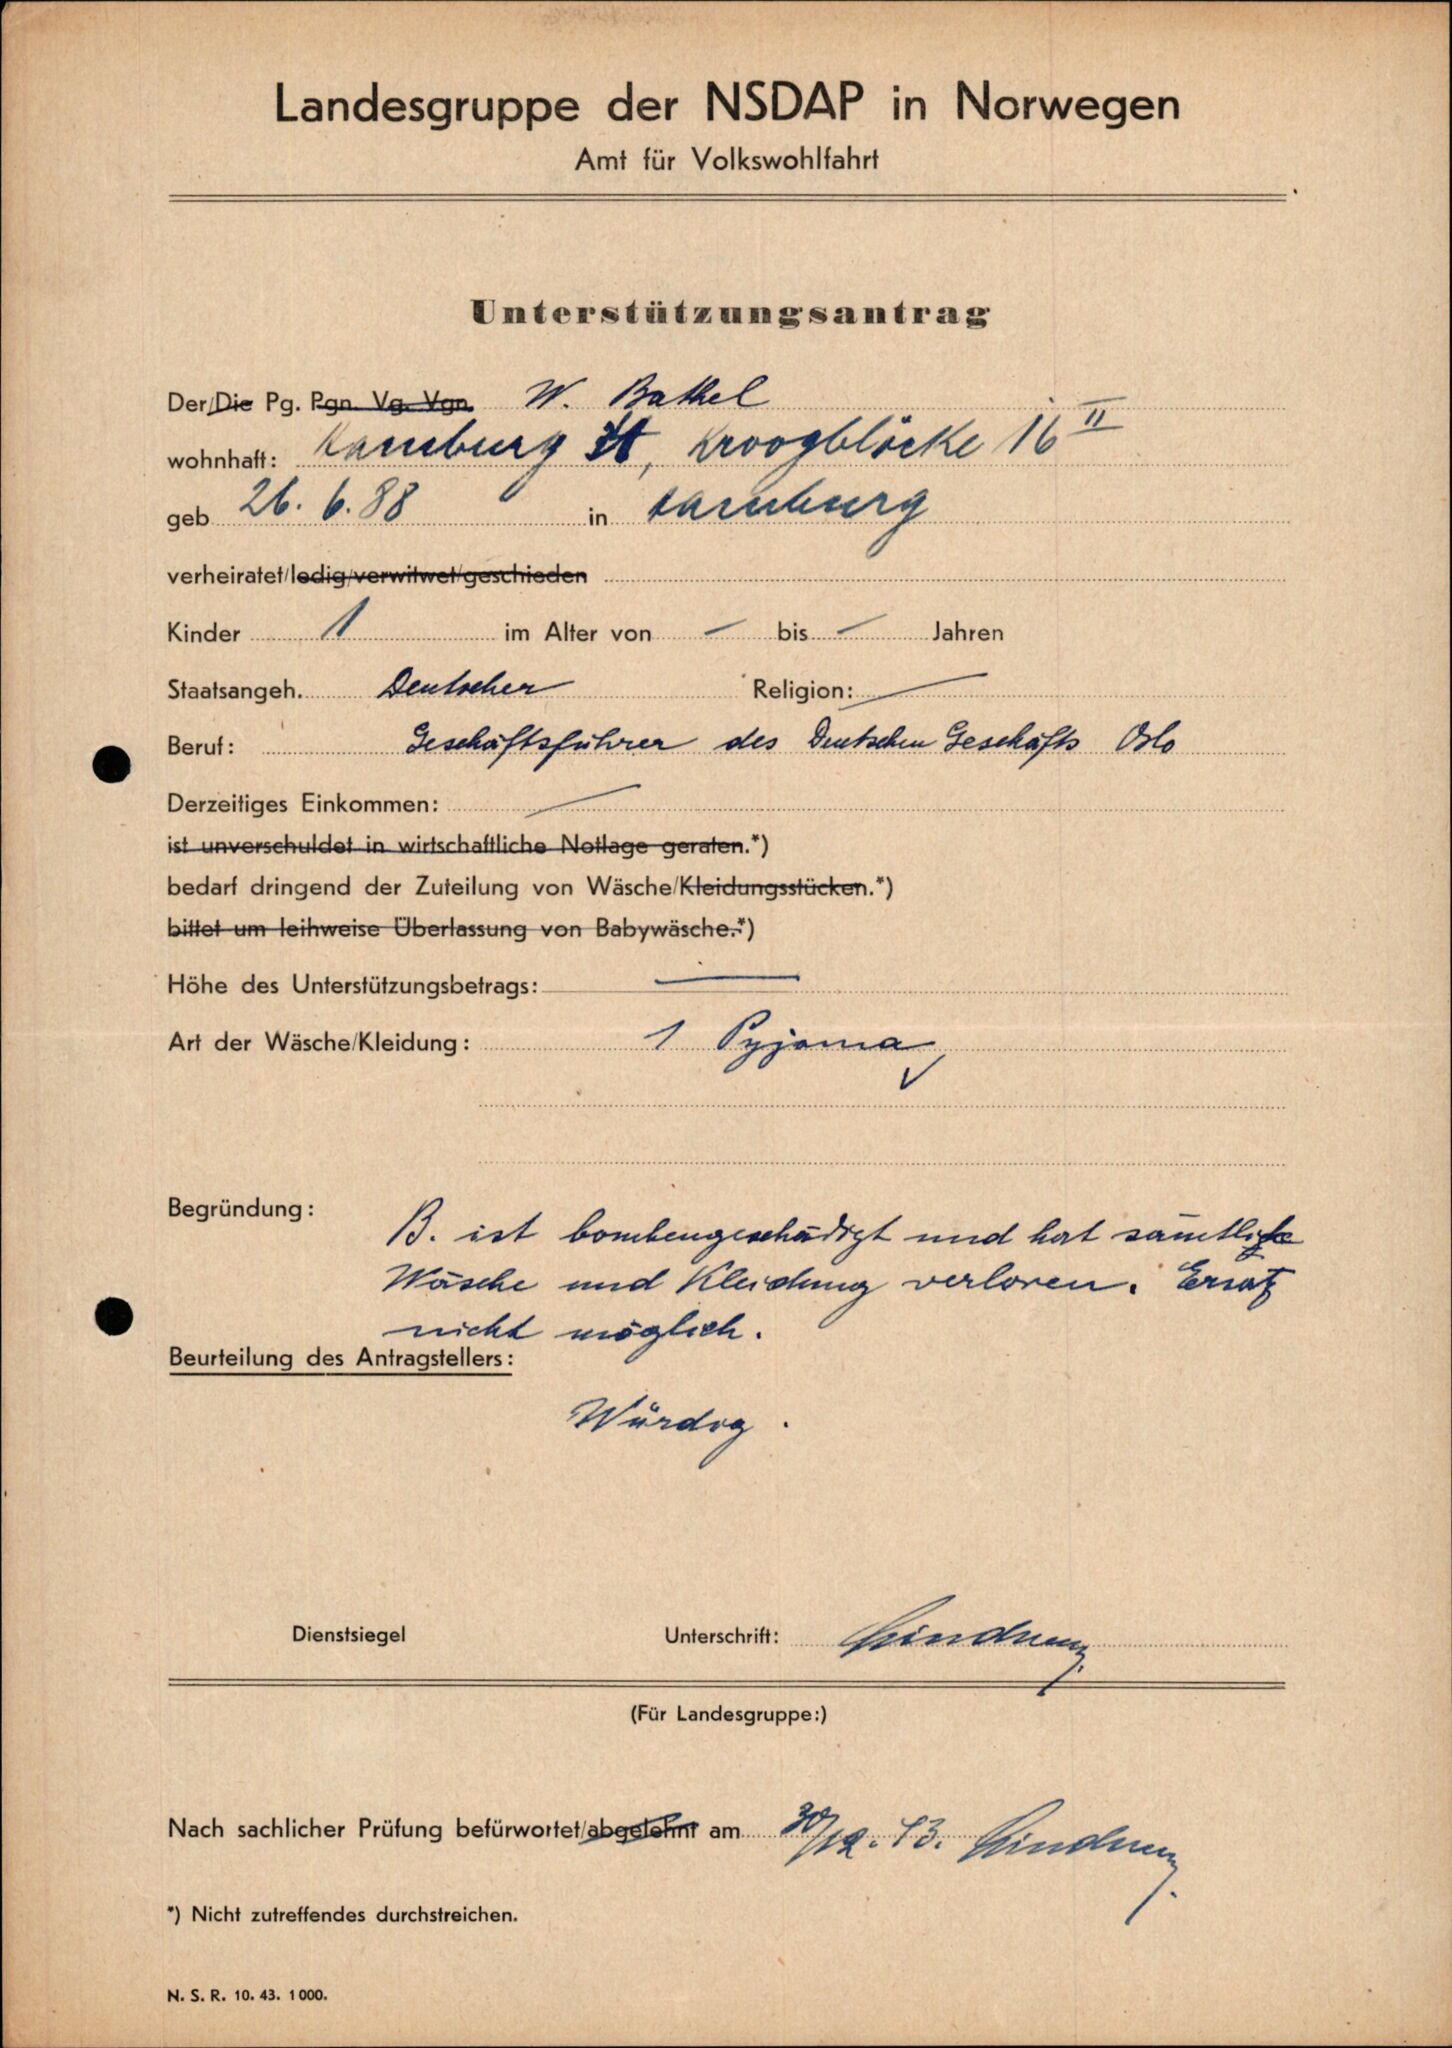 Landesgruppe der NSDAP in Norwegen
Amt für Volkswohlfahrt
Unterstützungsantrag
Der/Die Pg. Pgn. Vg. Vgn. W. Bathel
wohnhaft: Hamburg, Kroogblöcke 16 II
geb 26. 6. 88 in Hamburg
verheiratet/ledig/verwitwet/geschieden
Kinder 1 im Alter von – bis – Jahren
Staatsangeh. Deutscher Religion: —
Beruf: Geschäftsführer des Deutschen Geschäfts Oslo
Derzeitiges Einkommen: —
ist unverschuldet in wirtschaftliche Notlage geraten.*)
bedarf dringend der Zuteilung von Wäsche/Kleidungsstücken.*)
bittet um leihweise Überlassung von Babywäsche.*)
Höhe des Unterstützungsbetrags: —
Art der Wäsche/Kleidung: 1 Pyjama
Begründung: B. ist bombengeschädigt und hat sämtliche
Wäsche und Kleidung verloren. Ersatz
nicht möglich.
Beurteilung des Antragstellers:
Würdig.
Dienstsiegel Unterschrift:
(Für Landesgruppe:)
Nach sachlicher Prüfung befürwortet/abgelehnt am 30/12. 43.
*) Nicht zutreffendes durchstreichen.
N. S. R. 10. 43. 1000.